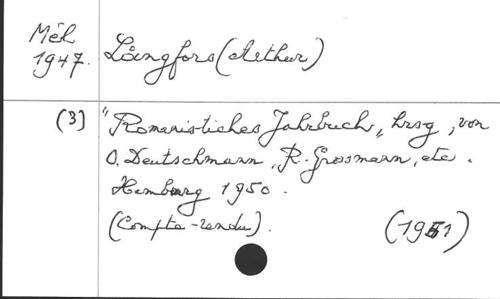 Mél
1947.
Långfors (Arthur)
(3)
"Romanistiches Jahrbuch", hrsg, von
O. Deutschmann, R. Grossmann, etc.
Hamburg 1950.
(Compte-rendu).
(1951)